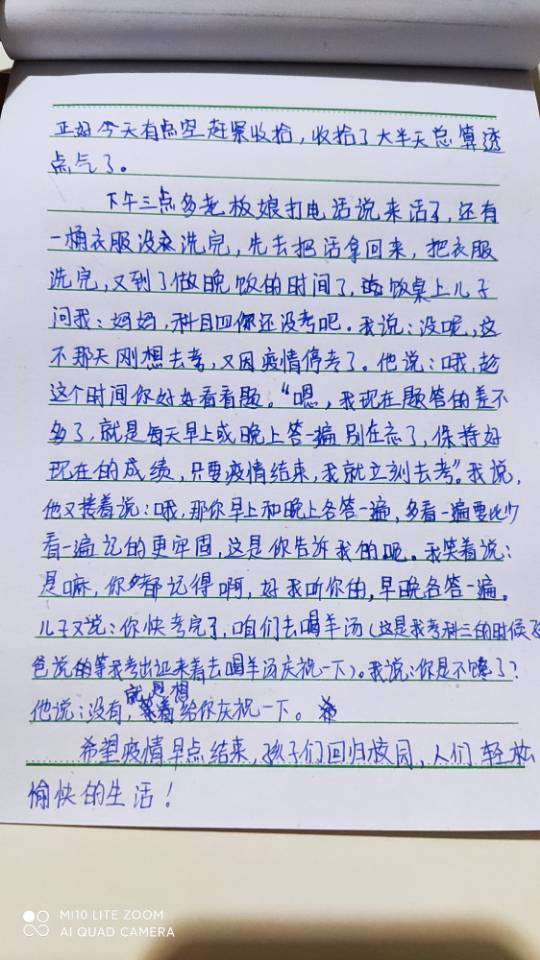 正好今天有点空赶紧收拾，收拾了大半天总算透
点气了。
下午三点多老板娘打电话说来活了，还有
一桶衣服没洗完，先去把活拿回来，把衣服
洗完，又到了做晚饭的时间了，饭桌上儿子
问我：妈妈，科目四你还没考吧。我说：没呢，这
不那天刚想去考，又因疫情停考了。他说：哦，趁
这个时间你好好看看题。“嗯，我现在题答的差不
多了，就是每天早上或晚上答一遍别在忘了，保持好
现在的成绩，只要疫情结束，我就立刻去考”。我说，
他又接着说：哦，那你早上和晚上各答一遍，多看一遍要比少
看一遍记的更牢固，这是你告诉我的呢。我笑着说：
是嘛，你都记得啊，好我听你的，早晚各答一遍。
儿子又说：你快考完了，咱们去喝羊汤（这是我考科三的时候孩
爸说的等我考出证来着去喝羊汤庆祝一下）。我说：你是不馋了？
他说：没有，就是想给你庆祝一下。
希望疫情早点结束，孩子们回归校园，人们轻松
愉快的生活！
MI 10 LITE ZOOM
AI QUAD CAMERA